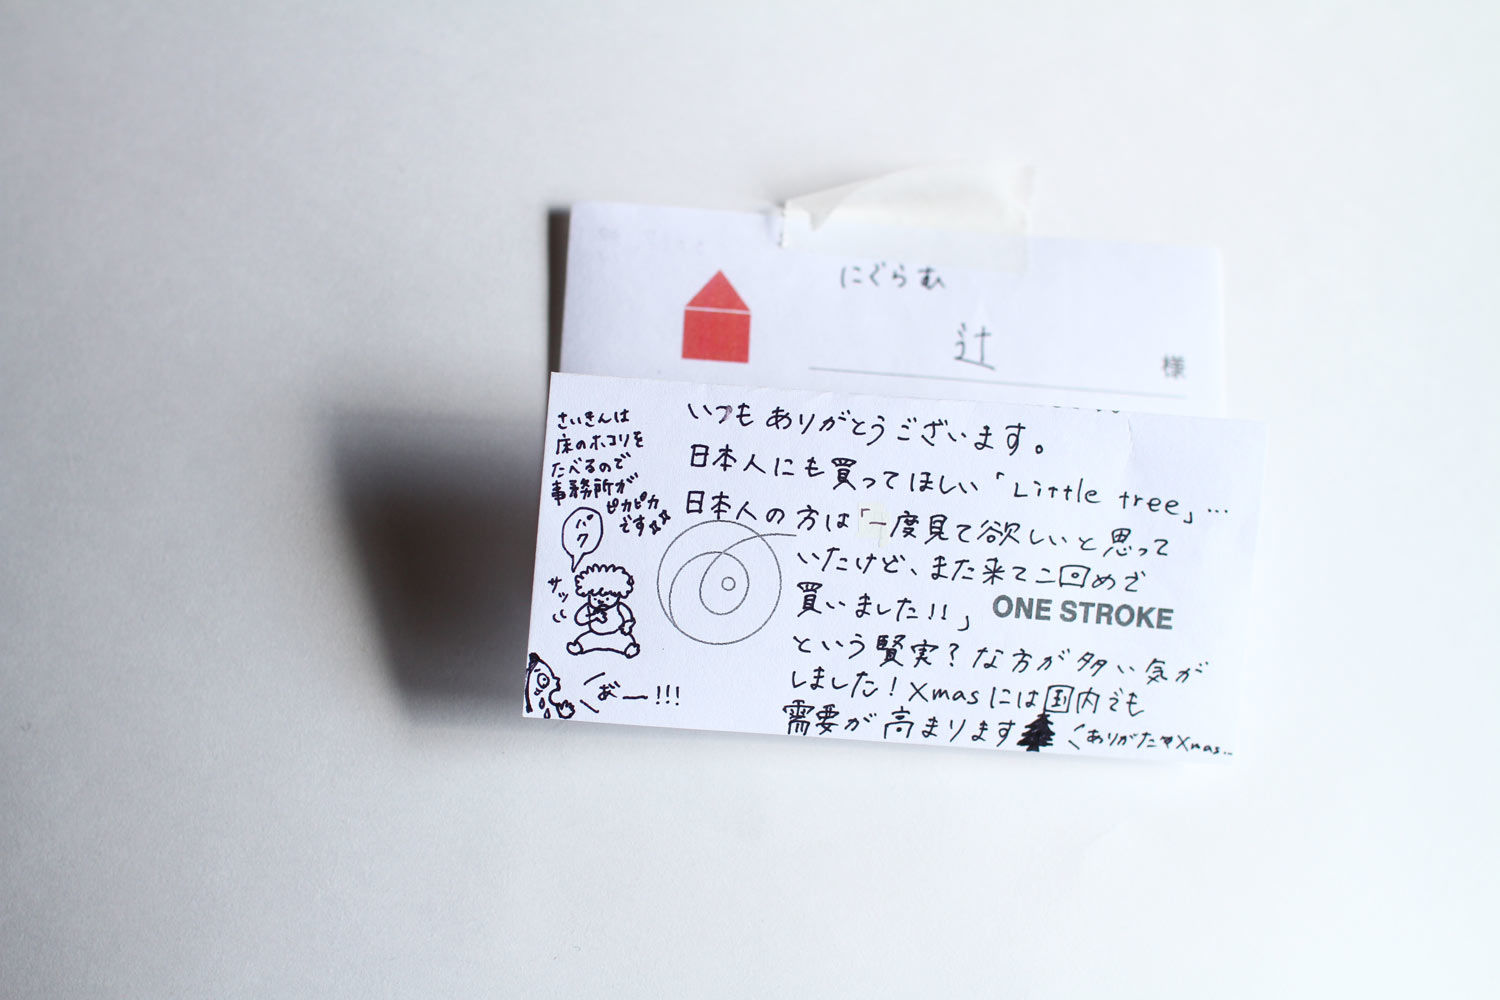 にぐらむ
辻
様
いつもありがとうございます。
日本人にも買ってほしい「Little tree」…
日本人の方は「一度見て欲しいと思って
いたけど、また来て二回めで
買いました!!」
ONE STROKE
という賢実?な方が多い気が
しました!Xmasには国内でも
需要が高まります
ありがたやXmas…
さいきんは
床のホコリを
たべるので
事務所が
ピカピカ
です
パク
サッ
お゛ー!!!